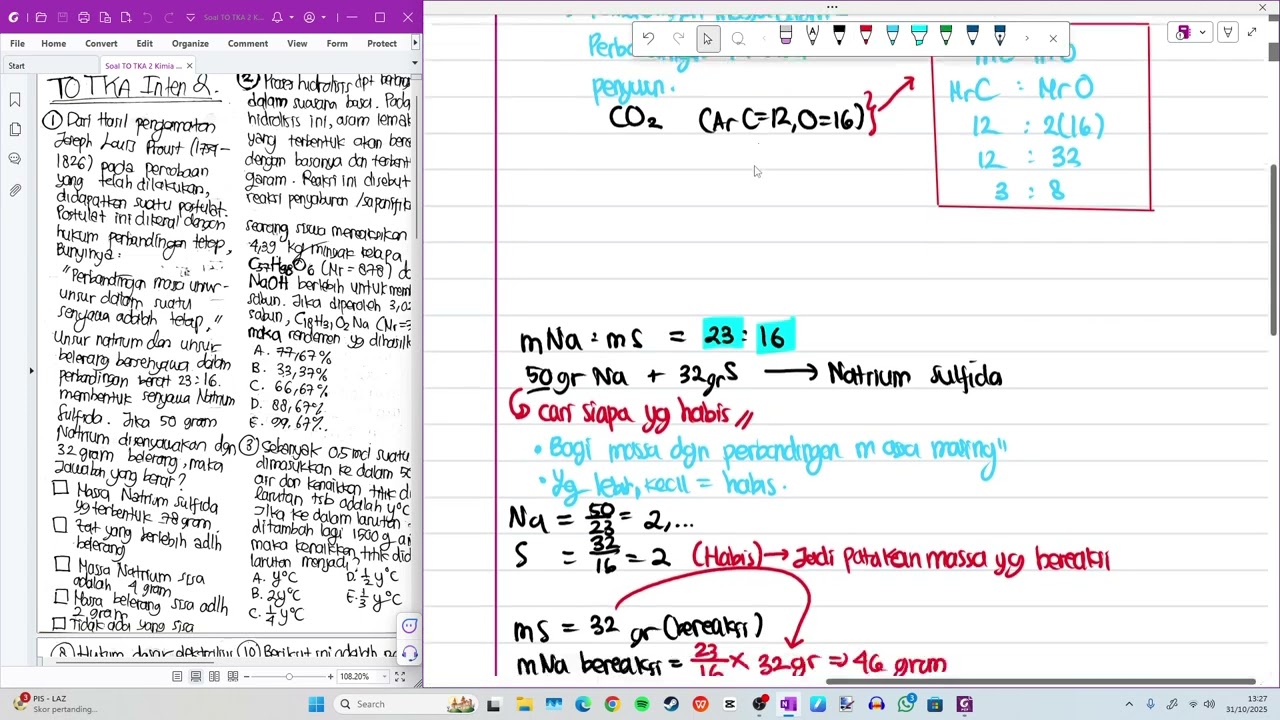 Soal TO TKA 2 K...
File Home Convert Edit Organize Comment View Form Protect
Start
Soal TO TKA 2 Kimia ...
TO TKA Inten 2.
1 Dari Hasil pengamatan
Joseph Louis Proust (1754-
1826) pada percobaan
yang telah dilakukan,
didapatkan suatu postulat.
Postulat ini dikenal dengan
hukum perbandingan tetap,
Bunyinya:
"Perbandingan massa unsur-
unsur dalam suatu
senyawa adalah tetap,"
Unsur natrium dan unsur
belerang bersenyawa dalam
perbandingan berat 23:16.
membentuk senyawa Natrium
Sulfida. Jika 50 gram
Natrium disenyawakan dgn
32 gram belerang, maka
Jawaban yang benar?
Massa Natrium Sulfida
yg terbentuk 78 gram
Zat yang berlebih adlh
belerang
Massa Natrium sisa
adalah 4 gram
Massa belerang sisa adlh
2 gram
Tidak ada yang sisa
2 Proses hidrolisis dpt
dalam suasana basa. Pada
hidrolisis ini, asam lemak
yang terbentuk akan
dengan basanya dan
garam. Reaksi ini disebut
reaksi penyabunan
seorang siswa mereaksikan
4,39 kg minyak kelapa
C57H98O6 (Mr = 878)
NaOH berlebih untuk
sabun. Jika diperoleh
sabun,
maka rendemen yg
A. 77,67%
B. 33,37%
C. 66,67%
D. 88,67%
E. 99,67%
3 Sebanyak 0,5 mol suatu
dimasukkan ke dalam
air dan kenaikkan titik
larutan tsb adalah y°C
Jika ke dalam larutan
ditambah lagi 1500 g air
maka kenaikken titik did
larutan menjadi?
A. y°C D. 1/2 y°C
B. 2y°C E. 1/3 y°C
C. 1/4 y°C
8 Hukum dasar elektrolisis
10 Berikut ini adalah
108.20%
penyusun.
CO2 (Ar C=12, O=16)
MrC : MrO
12 : 2(16)
12 : 32
3 : 8
mNa : mS = 23 : 16
50gr Na + 32gr S → Natrium sulfida
cari siapa yg habis //
• Bagi massa dgn perbandingan massa masing"
• Yg lebih kecil = habis.
Na = 50/23 = 2,...
S = 32/16 = 2 (Habis) → Jadi patokan massa yg bereaksi
mS = 32 gr (bereaksi)
mNa bereaksi = 23/16 × 32gr ⇒ 46 gram
3
PIS - LAZ
Skor pertanding...
Search
3
13:27
31/10/2025